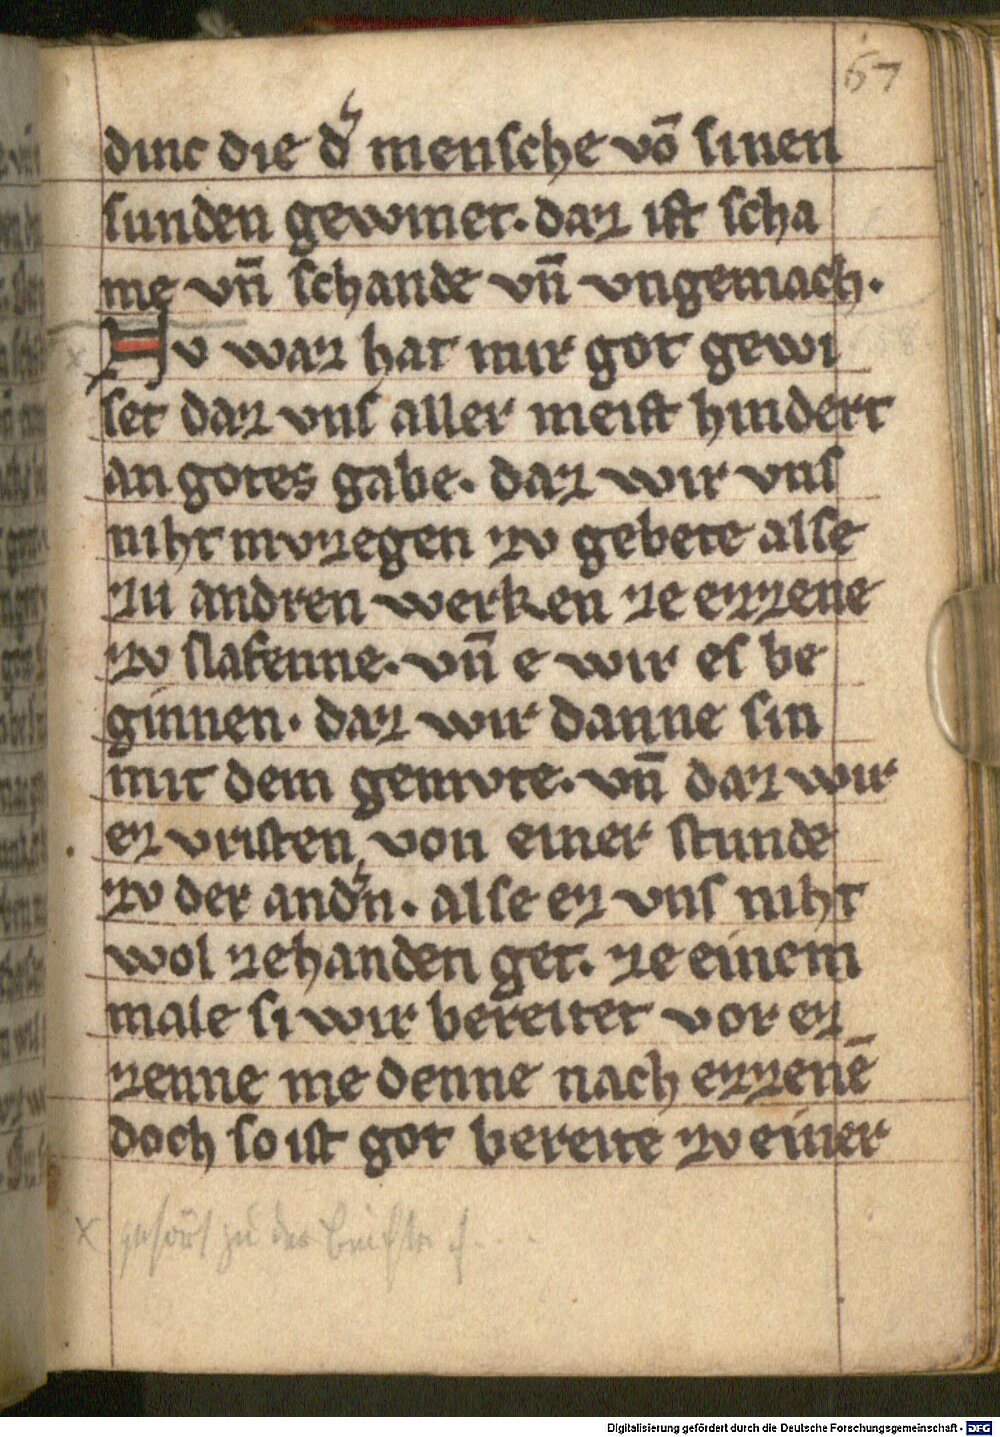 57
dinc die d͛ mensche vō sinen
sunden gewinnet. daz ist scha
me vn̄ schande vn̄ vngemach.
Nv waz hat mir got gewi
set daz vns aller meist hindert
an gotes gabe. daz wir vns
niht mvzegen zv gebete alse
zu andren werken ze ezzene
zv slafenne. vn̄ e wir es be
ginnen. daz wir danne sin
mit dem gemvte. vn̄ daz wir
ez vristen von einer stunde
zv der and͛n. alse ez vns niht
wol zehanden get. ze einem
male si wir bereitet vor ez
zenne me denne nach ezzenē
doch so ist got bereite zv einer
x gehört zu der
Digitalisierung gefördert durch die Deutsche Forschungsgemeinschaft - DFG